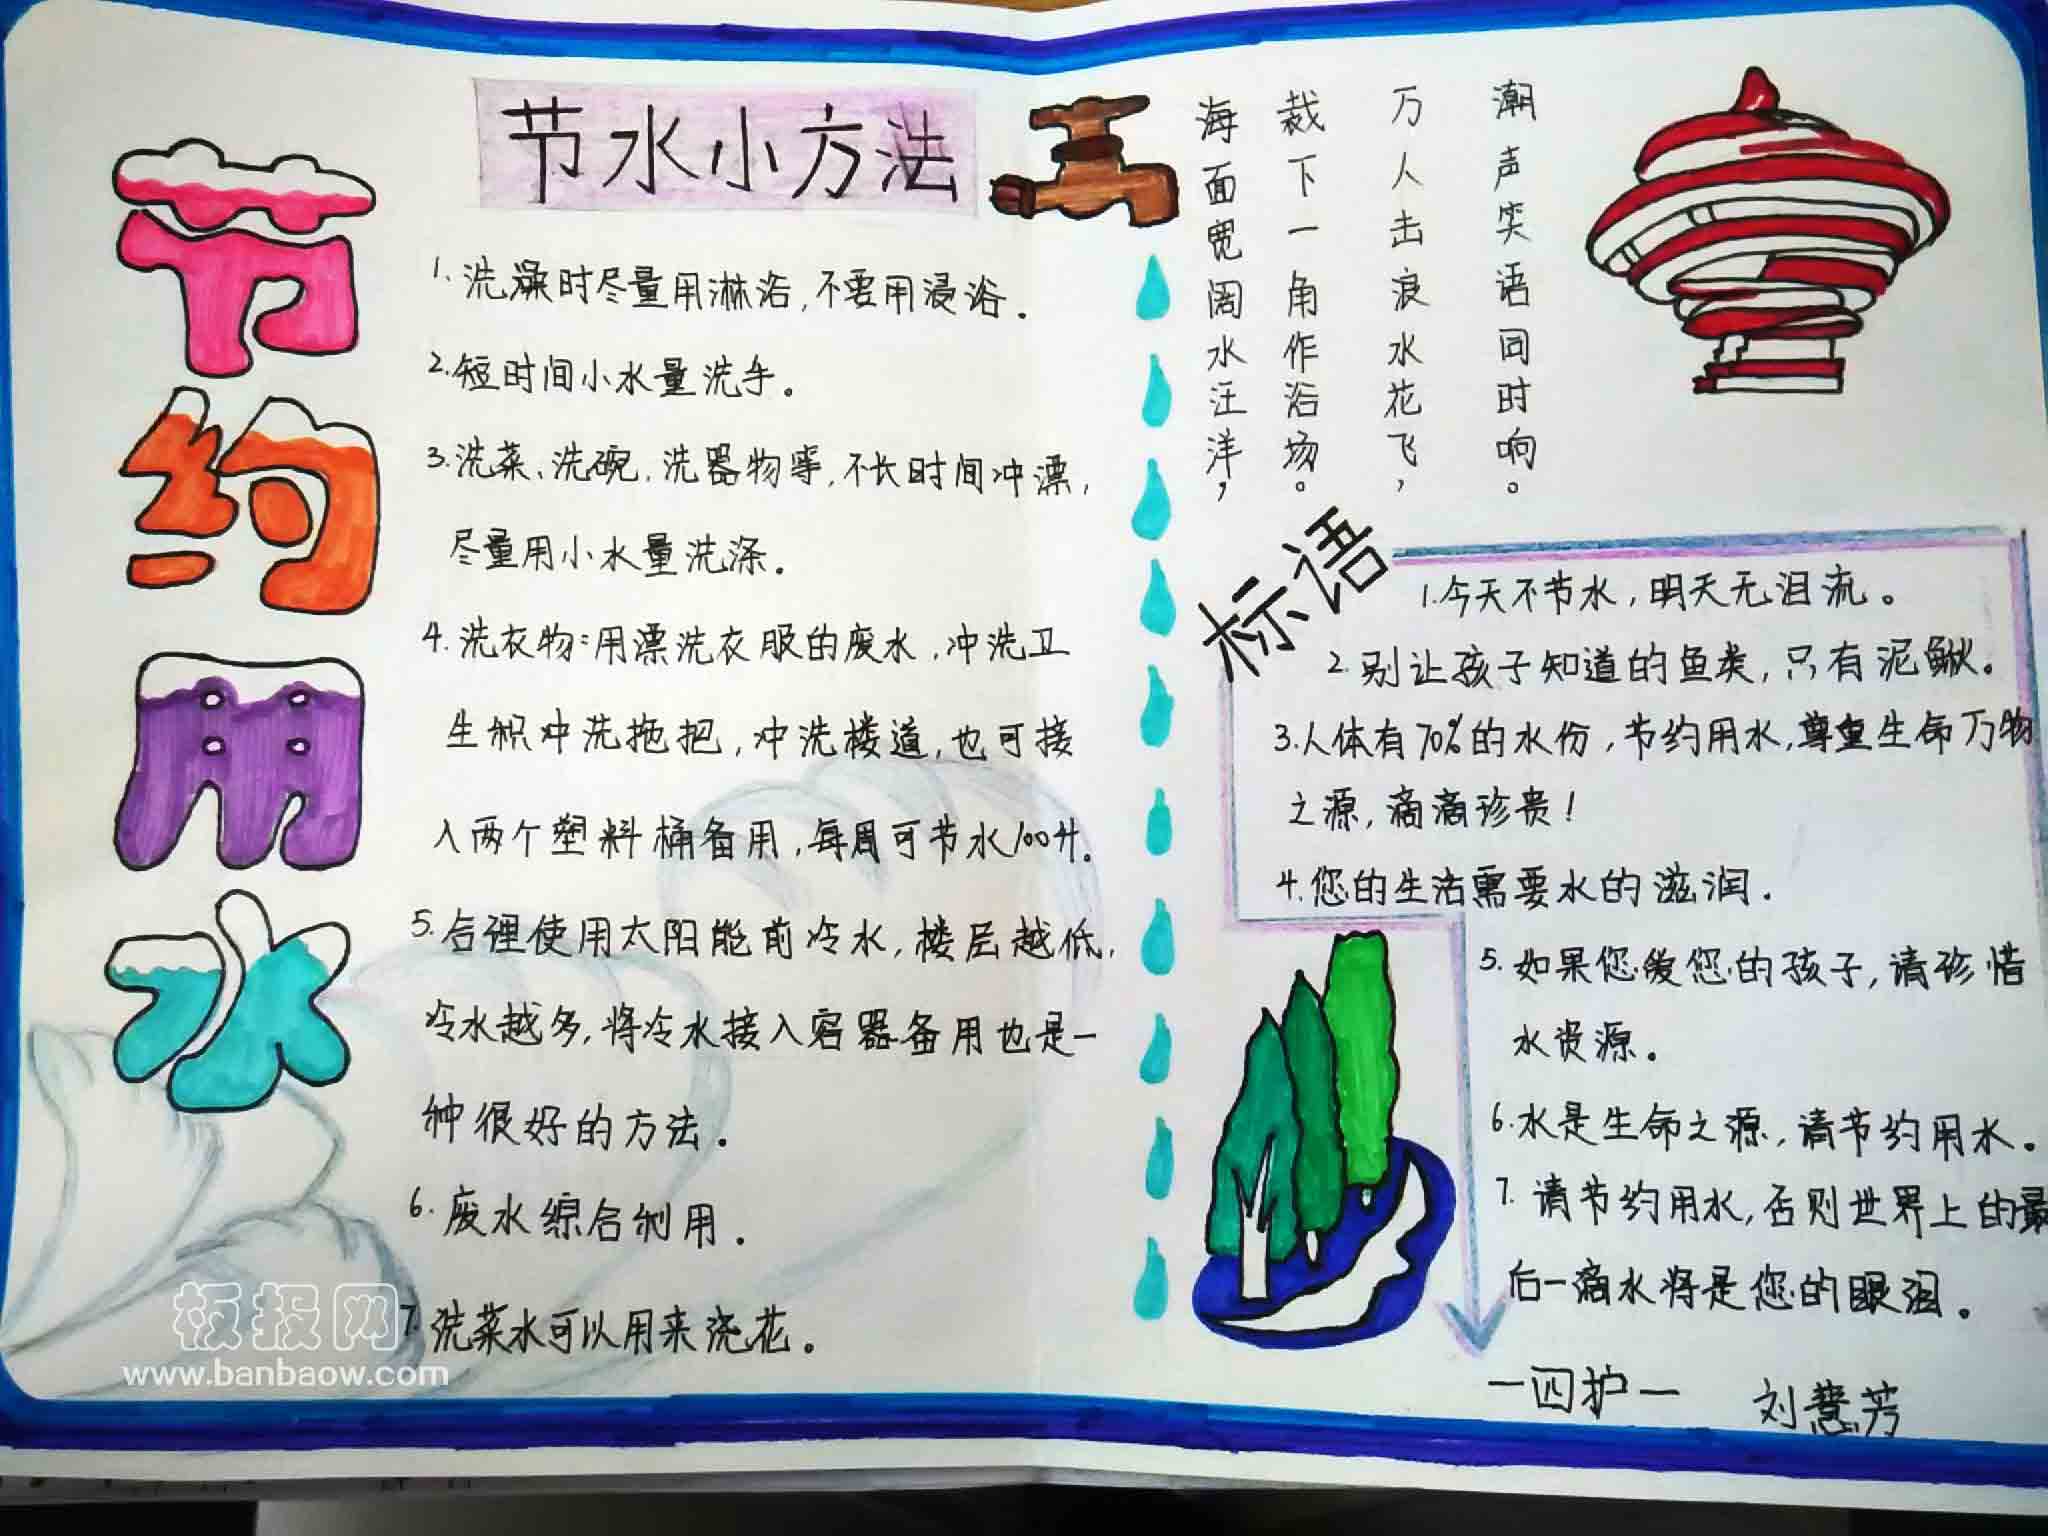 节约用水
节水小方法
1.洗澡时尽量用淋浴,不要用浸浴.
2.短时间小水量洗手。
3.洗菜、洗碗,洗器物等,不长时间冲漂,
尽量用小水量洗涤。
4.洗衣物:用漂洗衣服的废水,冲洗卫
生积冲洗拖把,冲洗楼道,也可接
入两个塑料桶备用,每周可节水100升。
5.合理使用太阳能前冷水,楼层越低,
冷水越多,将冷水接入容器备用也是一
种很好的方法.
6.废水综合利用.
7.洗菜水可以用来浇花。
海面宽阔水汪洋,
裁下一角作浴场。
万人击浪水花飞,
潮声笑语同时响。
标语
1.今天不节水,明天无泪流。
2.别让孩子知道的鱼类,只有泥鳅。
3.人体有70%的水份,节约用水,尊重生命万物
之源,滴滴珍贵!
4.您的生活需要水的滋润.
5.如果您爱您的孩子,请珍惜
水资源。
6.水是生命之源,请节约用水。
7.请节约用水,否则世界上的最
后一滴水将是您的眼泪。
一四护一 刘慧芳
板报网
www.banbaow.com